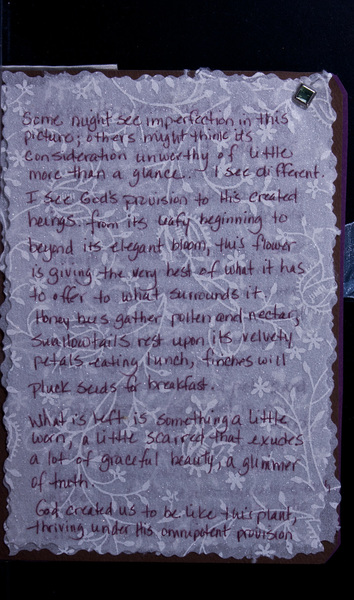 Some might see imperfection in this
picture; others might think its
consideration unworthy of little
more than a glance... I see different.
I see God's provision to His created
beings. from its leafy beginning to
beyond its elegant bloom, this flower
is giving the very best of what it has
to offer to what surrounds it.
Honey bees gather pollen and nectar,
Swallowtails rest upon its velvety
petals eating lunch, finches will
pluck seeds for breakfast.
What is left is something a little
worn, a little scarred that exudes
a lot of graceful beauty, a glimmer
of truth.
God created us to be like this plant,
thriving under His omnipotent provision